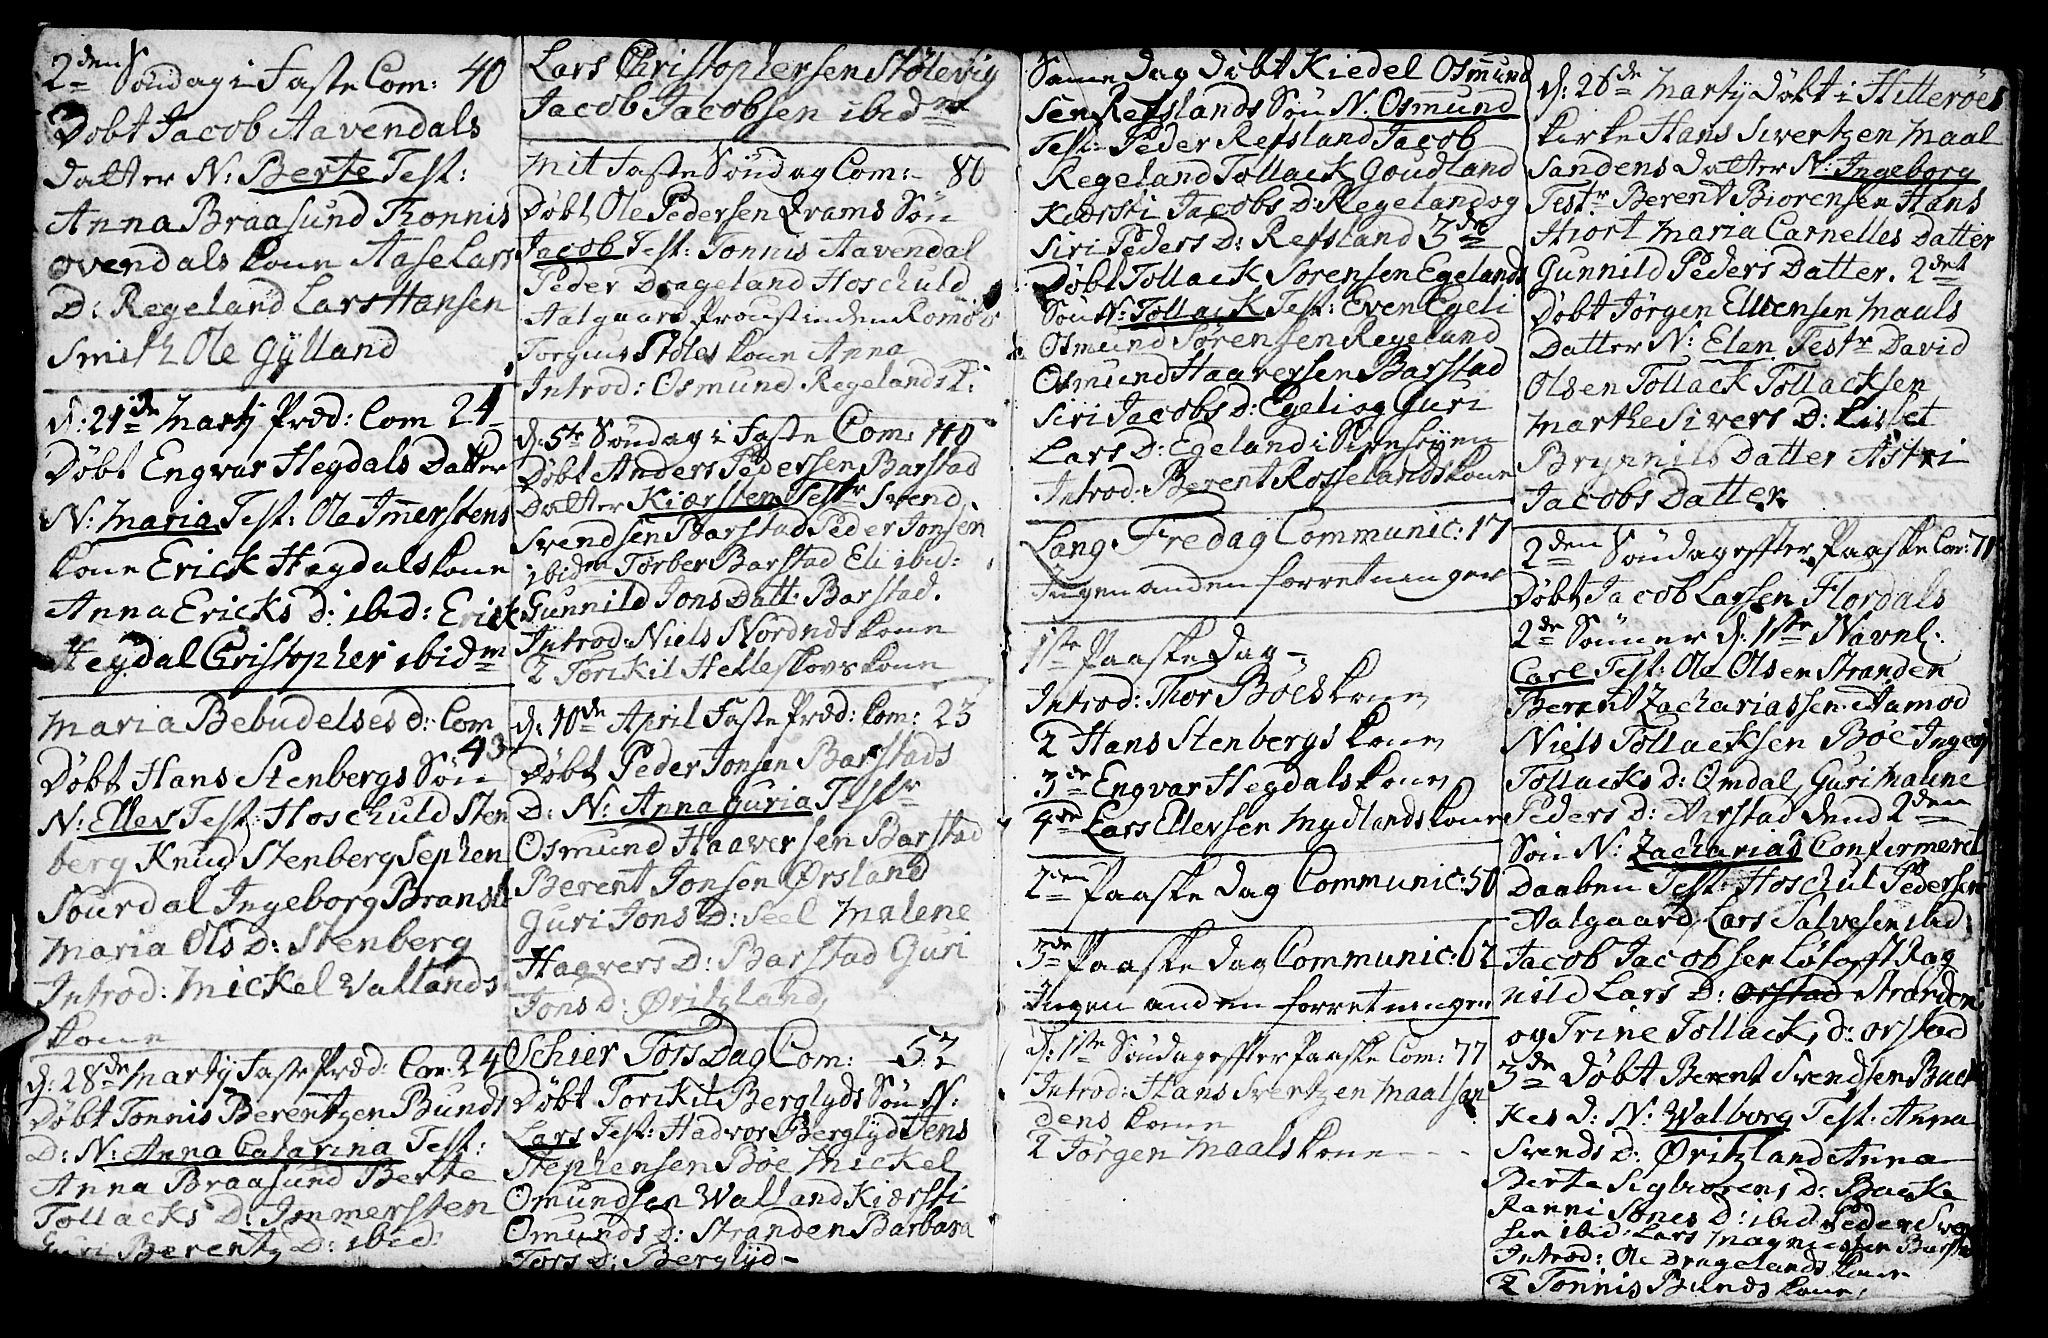 2den Söndag i Faste Com: 40
Döbt Jacob Aavendals
Datter N: Berte Test:
Anna Braasund Tonnis
ovendals kone Aase Lars
D: Regeland Lars Hansen
Smith Ole Gÿlland
d: 21de Martij Præd: Com 24
Döbt Engvar Hegdals Datter
N: Maria Test: Ole Imerstens
kone Erick Hegdals kone
Anna Ericks D: ibid: Erick
Hegdal Christopher ibidm
Maria Bebudelses d: Com
43
Döbt Hans Stenbergs Sön
N: Ellev Test: Hoschuld Sten
berg Knud Stenberg Sephen
Sourdal Ingeborg
Maria Ols D: Stenberg
Introd: Mickel Vallands
kone
d: 28de Martij Faste Præd: Com: 24
Döbt Tonnis Berentzen Bunds
D: N: Anna Catarina Test:
Anna Braasund Berte
Tollacks D: Immersten
Guri Berentz D: ibid:
Lars Christophersen Stölevig
Jacob Jacobsen ibidm
Mit Faste Söndag Com: 80
Döbt Ole Pedersen Qvams Sön
Jacob Test: Tonnis Aavendal
Peder Drageland Hoschuld
Aalgaard Proust inden
Torgius Stöles kone Anna
Introd: Osmund Regelands K:
d: 5te Söndag i Faste Com: 40
Döbt Anders Pedersen Barstad
Datter Kiærsten Testr Svend
Svendsen Barstad Peder Jonsen
ibidm Torber Barstad Eli ibid:
Gunnild Jons Datt: Barstad.
Introd: Niels Nordnds kone
2 Torikil Helleskovs kone
d: 10de April Faste Præd: Com: 23
Döbt Peder Jonsen Barstads
D: N: Anna Guria Testr
Osmund Haaversen Barstad
Berent Jonsen Ørsland
Guri Jons D: Seel Malene
Haavers D: Barstad Guri
Jons d: Øritzland,
Schier Tors Dag Com: 52
Döbt Torikil Berglyds Sön N:
Lars Test: Hadvor Berglyd Jens
Stephensen Böe Mickel
Omundsen Walland Kiærsti
Omunds D: Stranden Barbara
Tors D: Berglyd
Same Dag Döbt Kiedel Osmund
sen Refslands Sön N: Osmund
Test: Peder Refsland Jacob
Regeland Tollack Goudland
Kiersti Jacobs D: Regeland og
Siri Peders D: Refsland 3de
Döbt Tollack Sörensen Egelands
Sön N: Tollack Test: Even Egeli
Osmund Sørensen Regeland
Osmund Haaversen Barstad
Siri Jacobs D: Egeli og Guri
Lars D: Egeland i Siresöyen
Introd: Berent Rosselands kone
Lang Fredag Communic: 17
Ingen anden forretninger
1ste Paaske Dag
Introd: Thor Böes kone
2 Hans Stenbergs kone
3de Engvar Hegdals kone
4de Lars Ellevsen Mydlands kone
2den Paaske Dag Communic: 50
3de Paaske Dag Communic: 62
Ingen anden forretninger
d: 1ste Söndag effter Paaske Com: 77
Introd: Hans Svertzen Maalsan
dens kone
2 Jörgen Maals kone - - -
d: 26de Martij Döbt i Hitteröes
kirke Hans Sivertzen Maal
Sandens Datter N: Ingeborg
Testr Berent Biorensen Hans
Hiort Maria Carnelles Datter
Gunnild Peders Datter. 2det
Döbt Jörgen Ellevsen Maals
Datter N: Elen Testr David
Olsen Tollack Tollacksen
Marthe Sivers D: Lisbet
Brynnils Datter Astri
Jacobs Datter
2den Söndag effter Paaske Com: 71
Döbt Jacob Larsen Flordals
2de Sönner d: 1ste Navnl:
Carl Test: Ole Olsen Stranden
Berent Zachariassen Aamod
Niels Tollacksen Böe Ingeb:
Tollacks D: Omdal, Guri Malene
Peders D: Aarstad Dend 2den
Sön N: Zacharias Confirmeret
Daaben Test: Hoschul Pedersen
Aalgaard, Lars Salvesen ibid
Jacob Jacobsen Rag
nild Lars D: Orstad Stranden
og Trine Tollacks d: Orstad
3de Döbt Berent Svendsen Bac
kes d: N: Walborg Test: Anna
Svends D: Øritzland Anna
Berte Sigbiörens D: Backe
Ranni Jones D: ibid Peder Sven
sen ibid: Lars Magnusen Barst
Introd: Ole Dragelands kone
2 Tonnis Bunds kone,